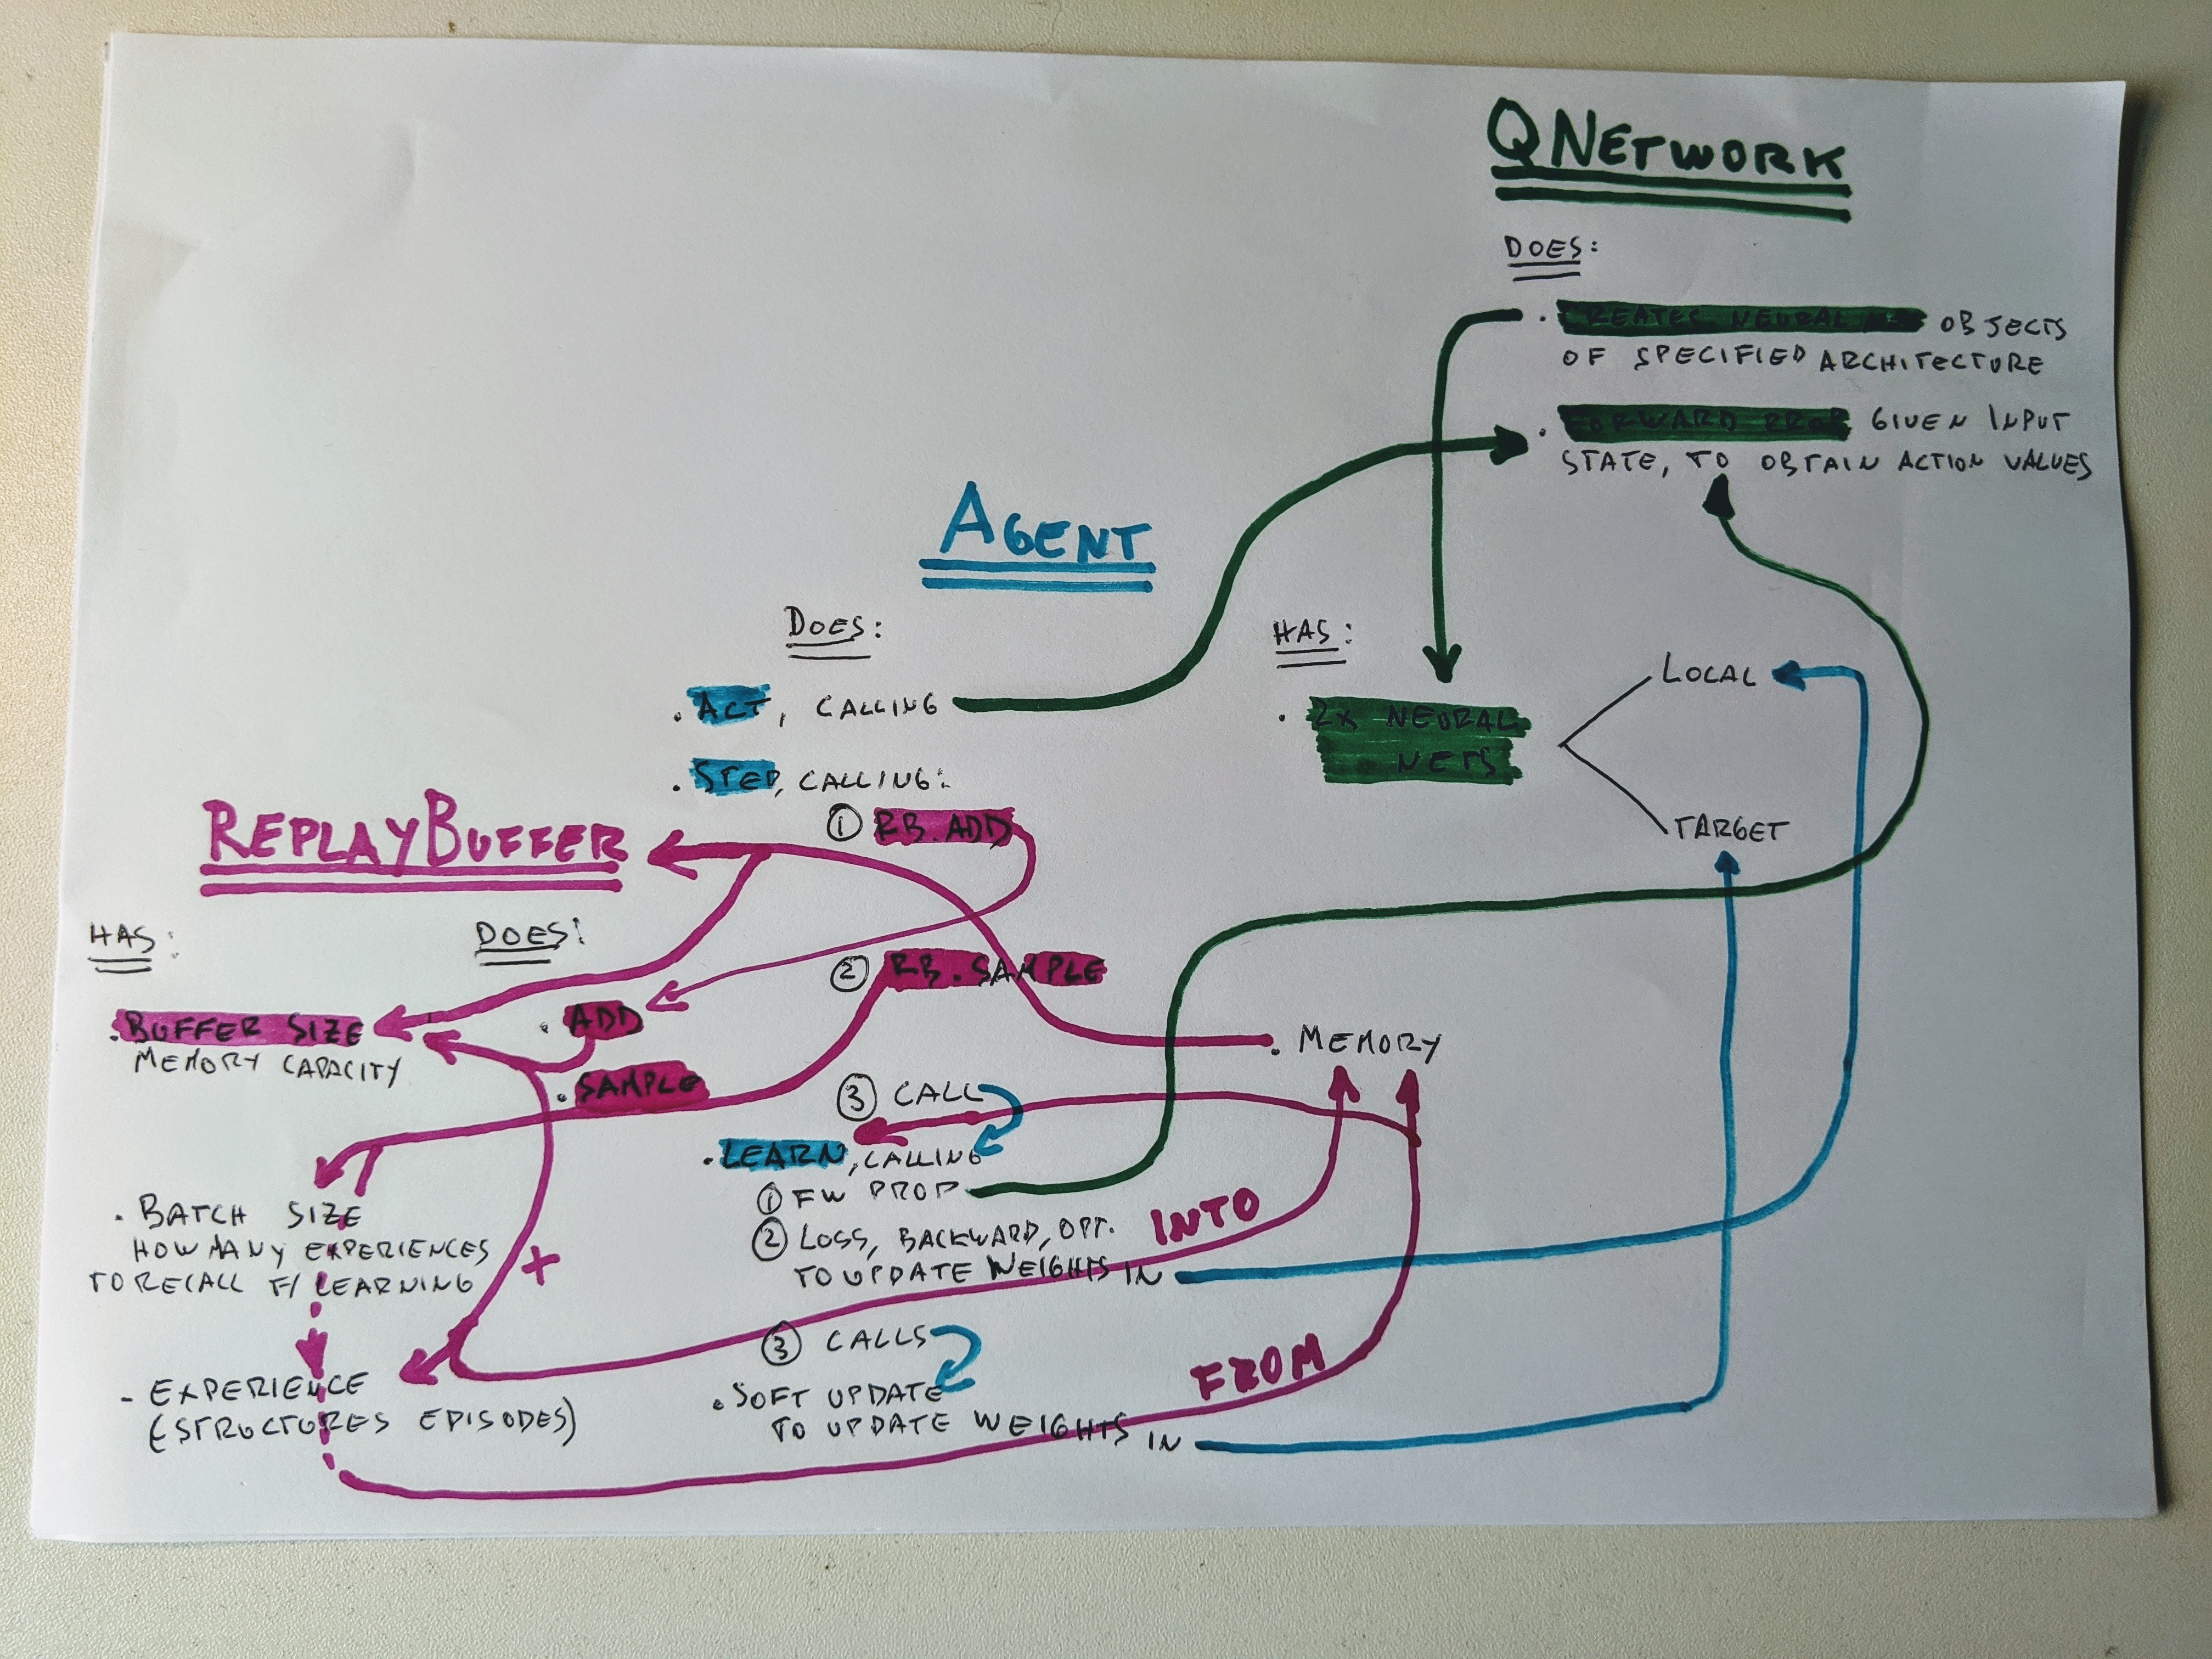 QNETWORK
DOES:
. CREATES NEURAL OBJECTS
OF SPECIFIED ARCHITECTURE
. FORWARD PROP GIVEN INPUT
STATE, TO OBTAIN ACTION VALUES
AGENT
DOES:
. ACT, CALLING
. STEP, CALLING:
① RB.ADD
② RB.SAMPLE
③ CALL
. LEARN, CALLING
① FW PROP
② LOSS, BACKWARD, OPT.
TO UPDATE WEIGHTS IN
③ CALLS
. SOFT UPDATE
TO UPDATE WEIGHTS IN
HAS:
. 2X NEURAL
NETS
LOCAL
TARGET
. MEMORY
INTO
FROM
REPLAYBUFFER
HAS:
. BUFFER SIZE
MEMORY CAPACITY
. BATCH SIZE
HOW MANY EXPERIENCES
TO RECALL F/ LEARNING
- EXPERIENCE
(STRUCTURES EPISODES)
DOES:
. ADD
. SAMPLE
+